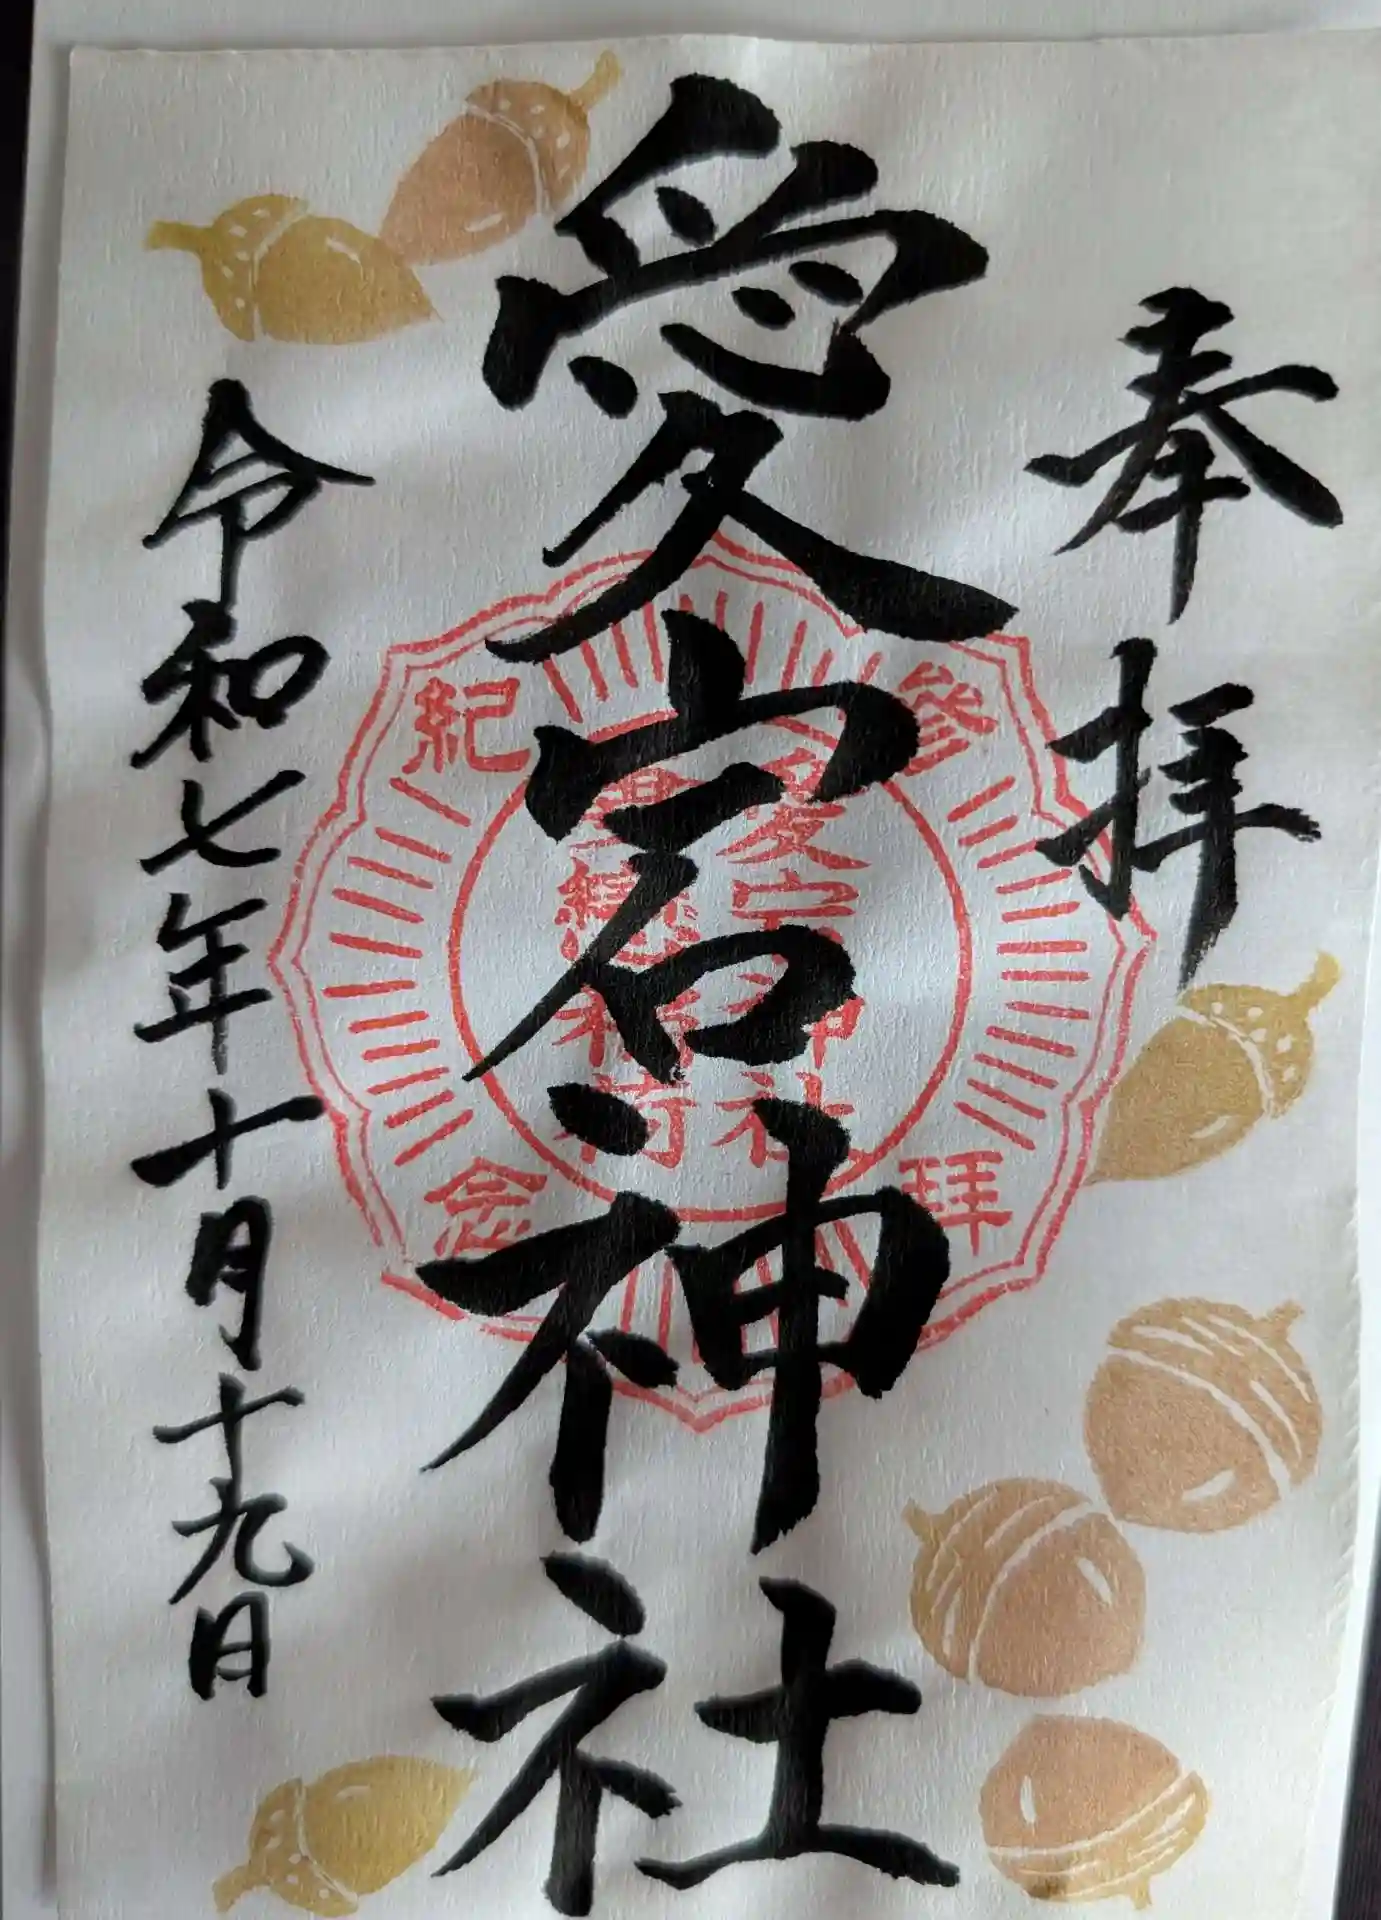 奉拝
愛宕神社
令和七年十月十九日
參拜
紀念
愛宕神社
稲荷